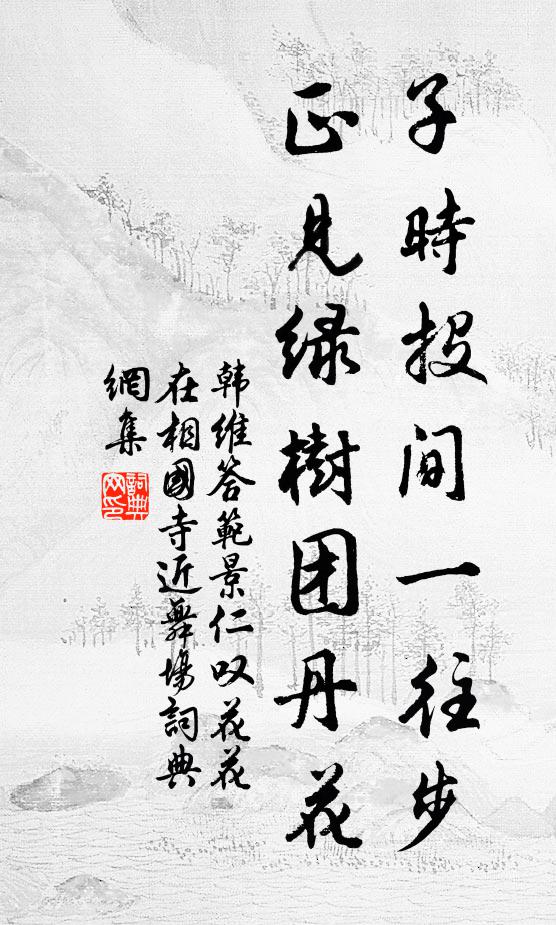 子時投间一往步
正見緑樹团丹花
韩维答範景仁叹花花
在相國寺近舞場詞典
網集
詞典
网印